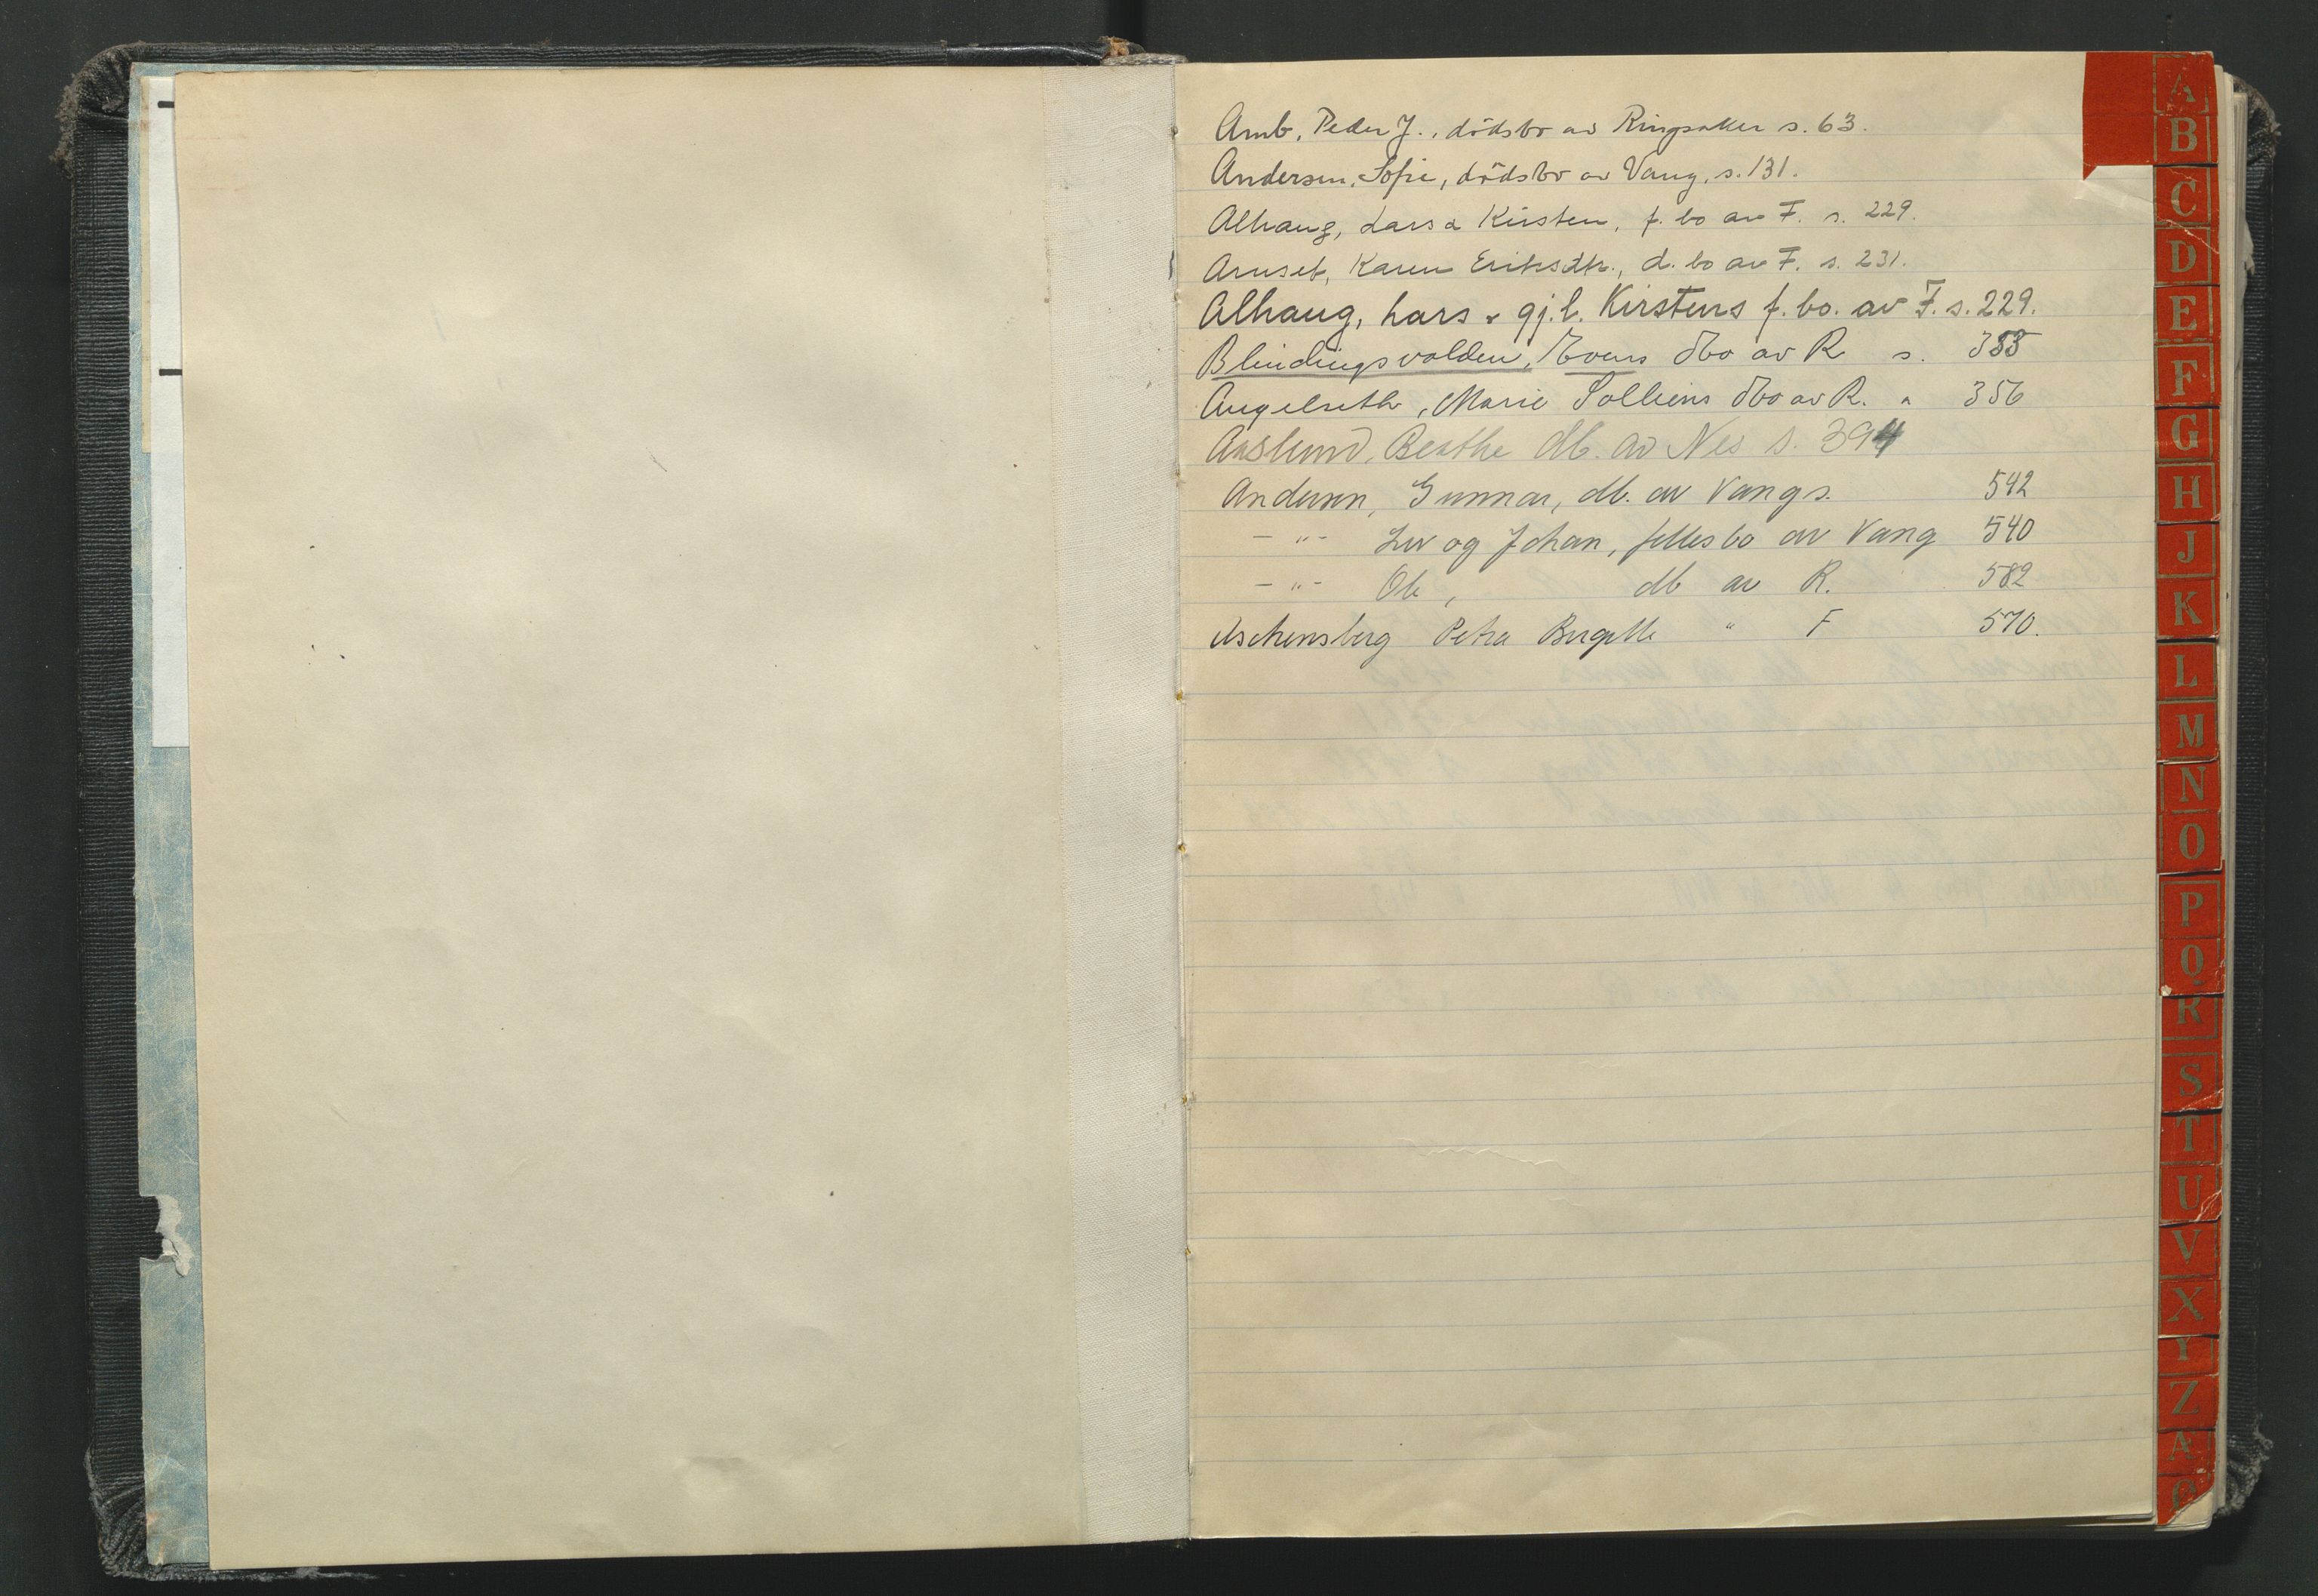 Amb, Peder J., dödsbo av Ringsaker s. 63.
Andersen, Sofie, dödsbo av Vang, s. 131.
Alhaug, Lars & Kirsten, f. bo av F. s. 229.
Arnset, Karen Eriksdtr., d. bo av F. s. 231.
Alhaug, Lars & gj.l. Kirstens f. bo. av F. s. 229.
Blindingsvolden, Evens dbo av R s. 353
Angelseth, Marie Solliens dbo av R. " 356
Aaslund, Berthe db. av Nes s. 394
Andersen, Gunnar, db. av Vang s. 542
- " - Liv og Johan, fellesbo av Vang 540
- " - Ole, db av R. 582
Aschensberg Petra Birgitte " F 570.
A
B
C
D
E
F
G
H
J
K
L
M
N
O
P
Q
R
S
T
U
V
X
Y
Z
Æ